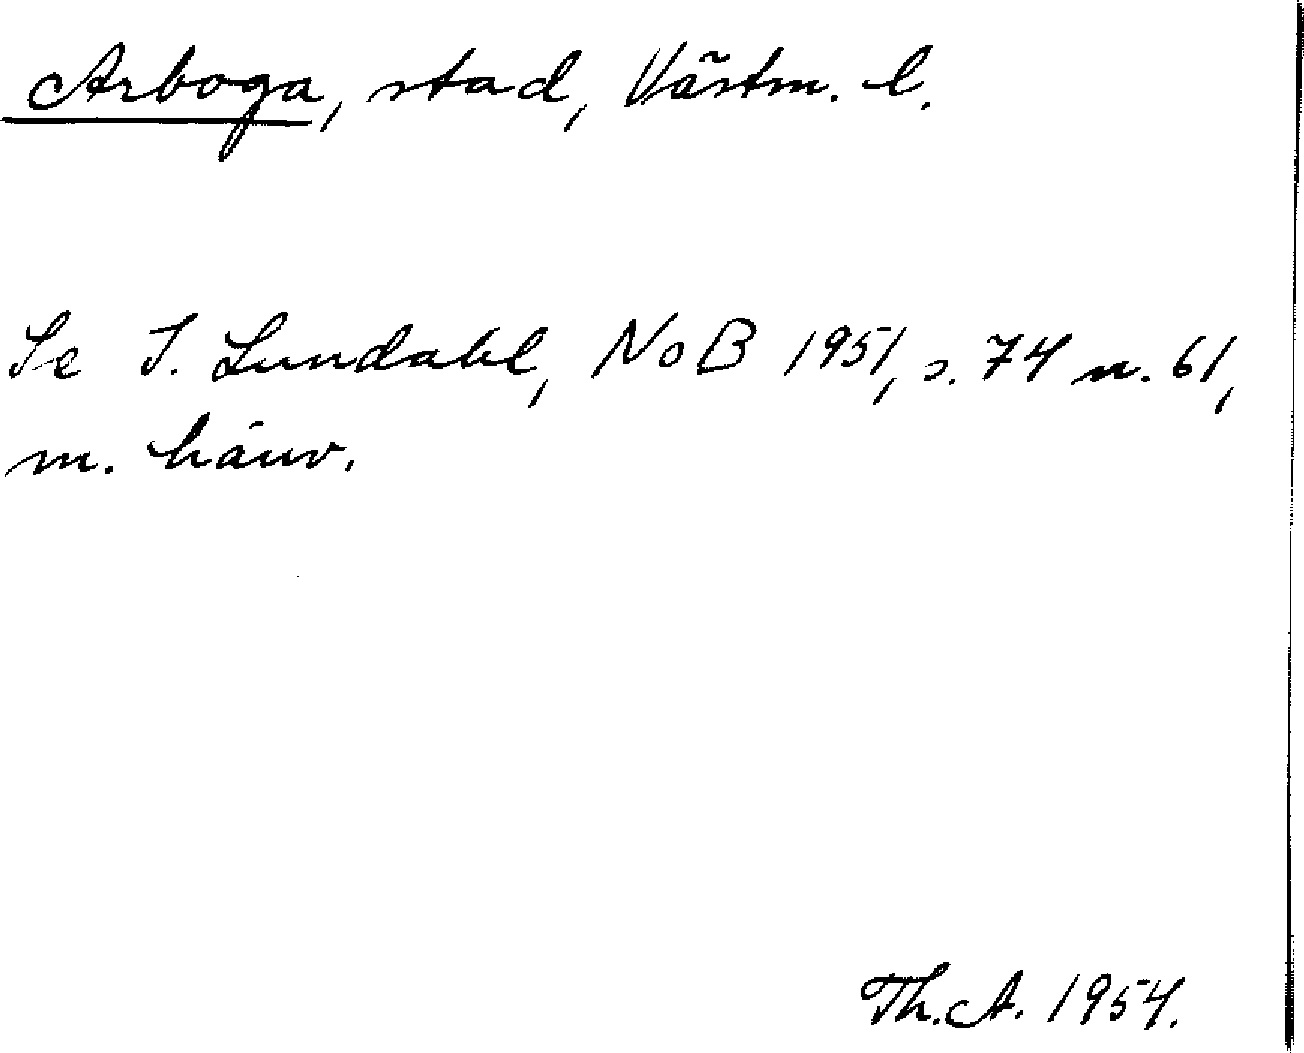 Arboga, stad, Västm. l.
Se I. Lundahl, NoB 1951, s. 74 n. 61,
m. hänv.
Th. A. 1954.